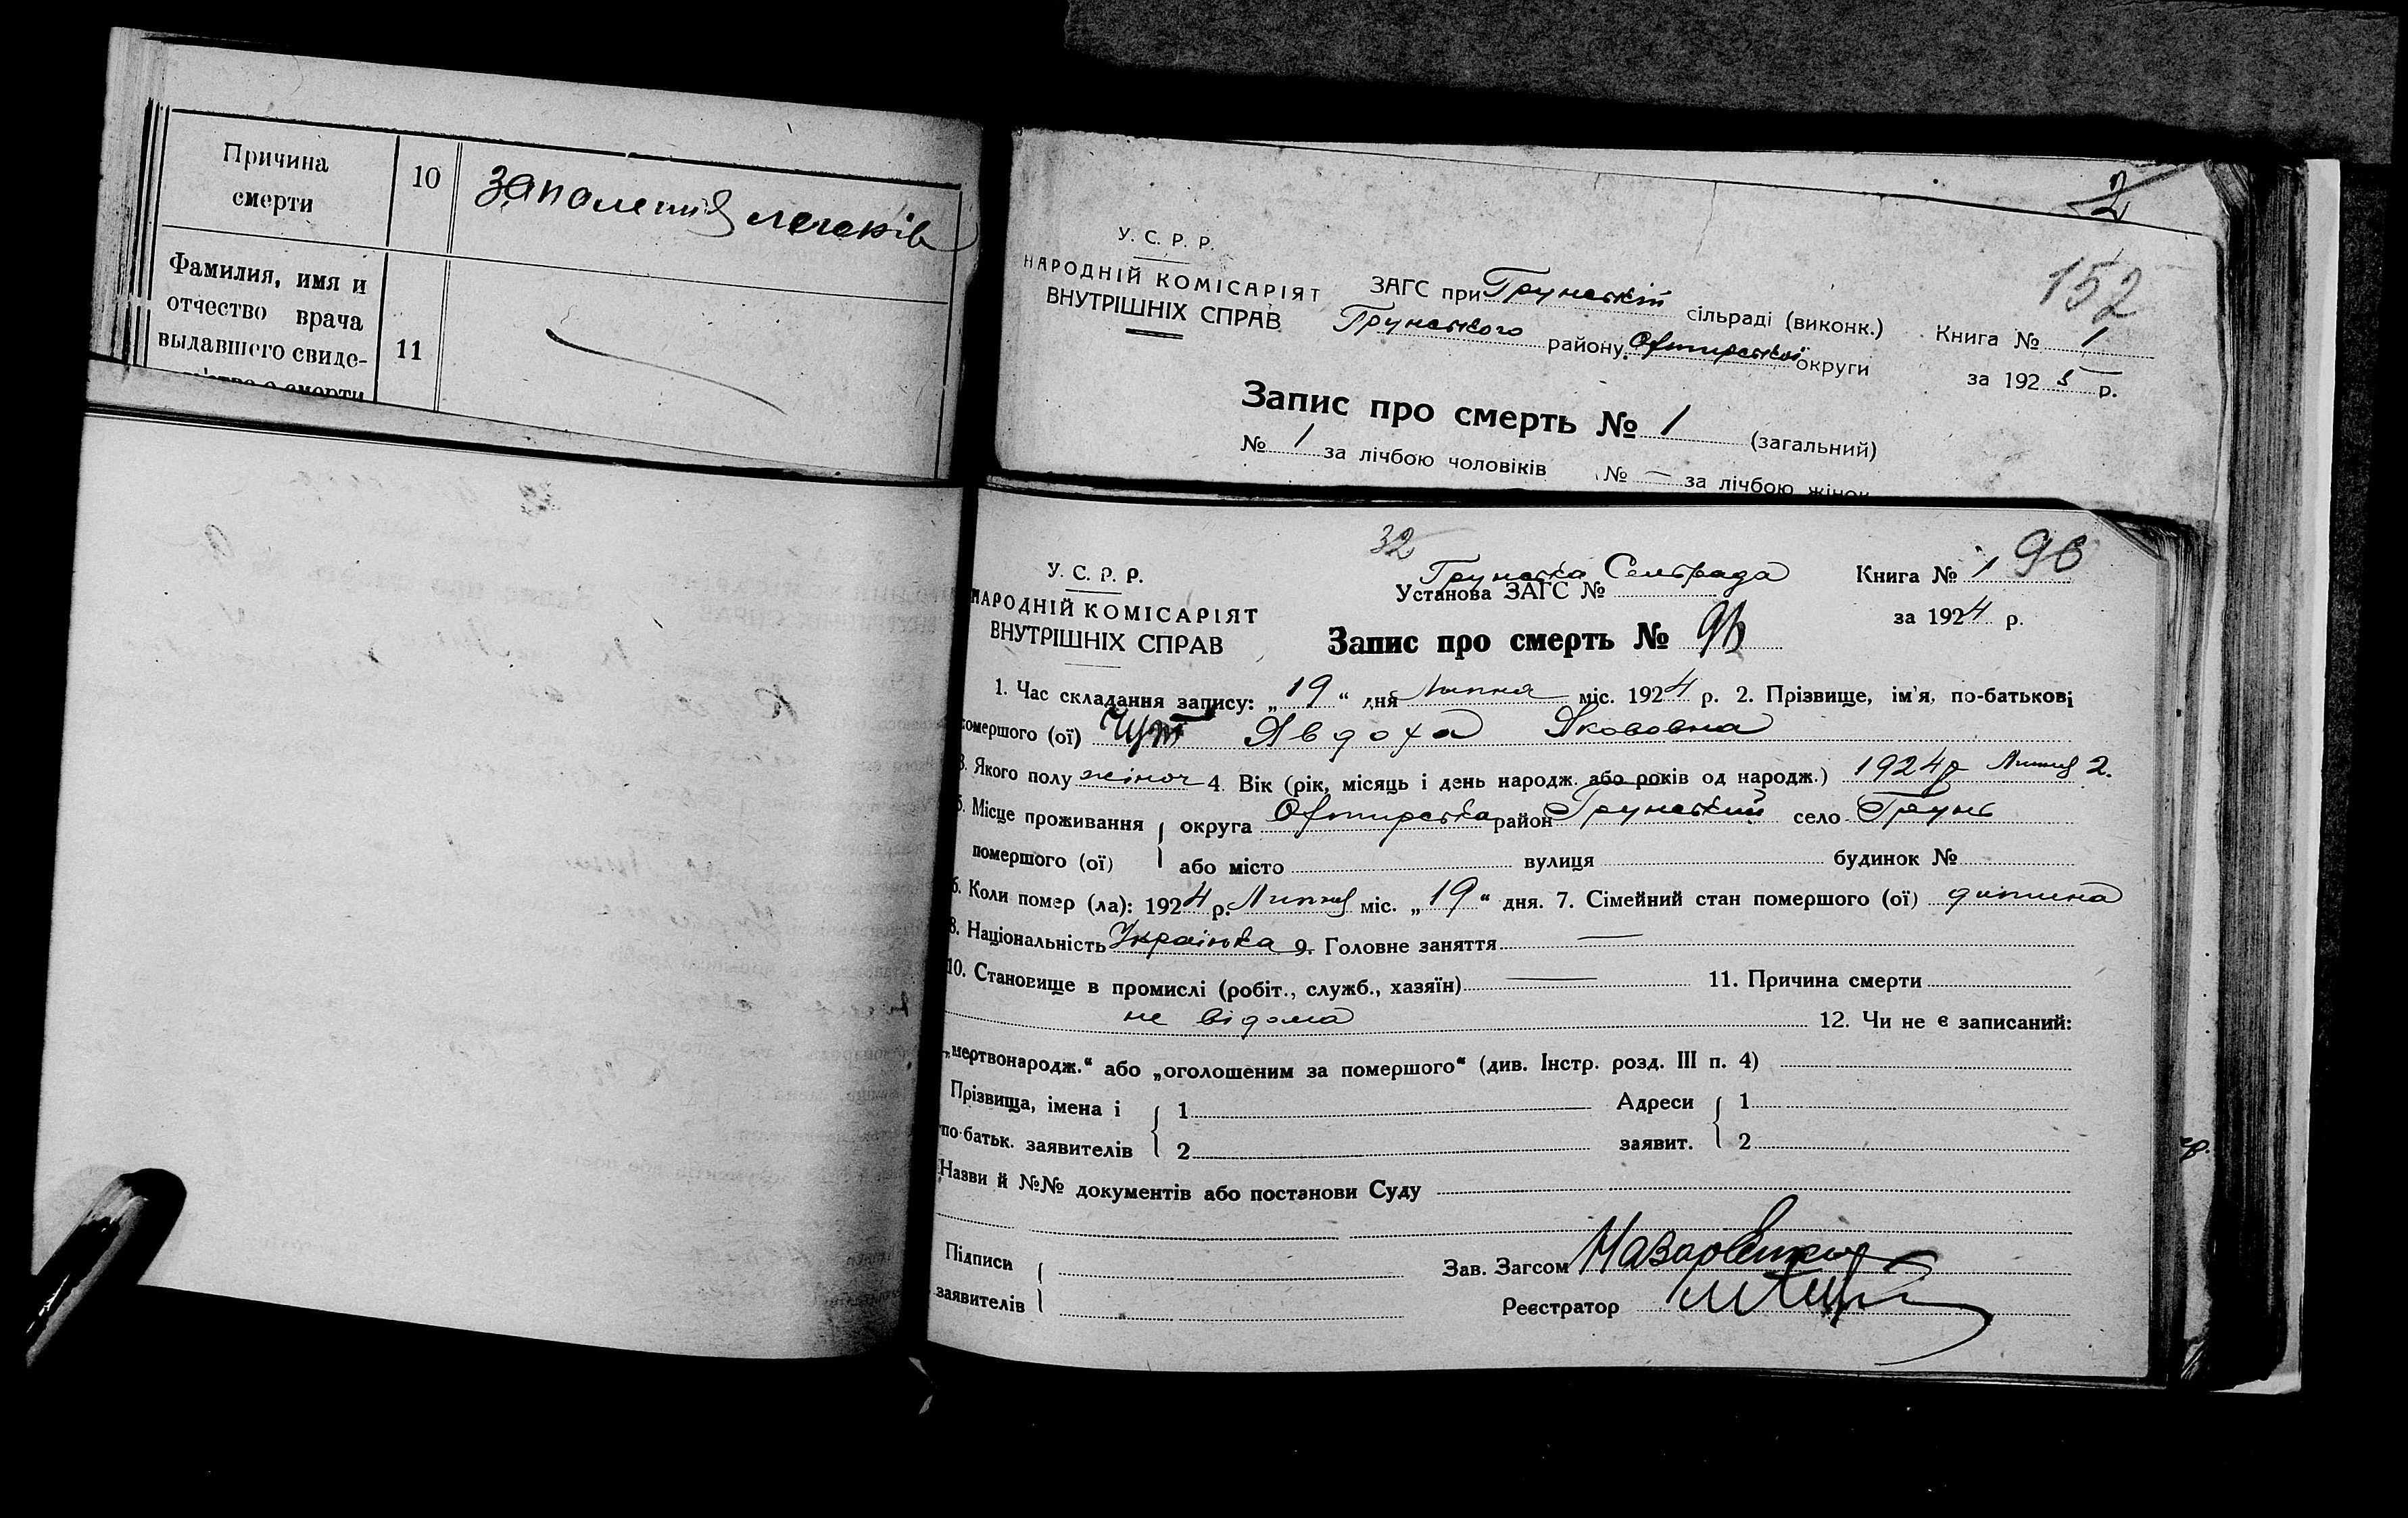 Причина
смерти
10
запаления легеків
Фамилия, имя и
отчество врача
выдавшего свиде-
11
2
152
У. С. Р. Р.
НАРОДНІЙ КОМІСАРІЯТ
ВНУТРІШНІХ СПРАВ
ЗАГС при Грунській сільраді (виконк.)
Грунського району Охтирської округи
Книга № 1
за 1925 р.
Запис про смерть № 1 (загальний)
№ 1 за лічбою чоловіків № — за лічбою жінок
32
У. С. Р. Р.
НАРОДНІЙ КОМІСАРІЯТ
ВНУТРІШНІХ СПРАВ
Грунська Сельрада
Установа ЗАГС №
Книга № 1 96
за 1924 р.
Запис про смерть № 96
1. Час складання запису: „ 19 “ дня Липня міс. 1924 р. 2. Прізвище, ім’я, по-батькові
помершого (ої) Явдоха Якововна
3. Якого полу жіноч 4. Вік (рік, місяць і день народж. або років од народж.) 1924 р Липня 2.
5. Місце проживання округа Охтирська район Грунський село Грунь
помершого (ої) або місто вулиця будинок №
6. Коли помер (ла): 1924 р. Липня міс. „ 19 “ дня. 7. Сімейний стан помершого (ої) дитина
8. Національність Українка 9. Головне заняття —
10. Становище в промислі (робіт., служб., хазяїн) — 11. Причина смерти
не відома 12. Чи не є записаний:
„мертвонародж.“ або „оголошеним за помершого“ (див. Інстр. розд. III п. 4)
Прізвища, імена і 1 Адреси 1
по-батьк. заявителів 2 заявит. 2
Назви й №№ документів або постанови Суду
Підписи
заявителів
Зав. Загсом Назаренко
Реєстратор